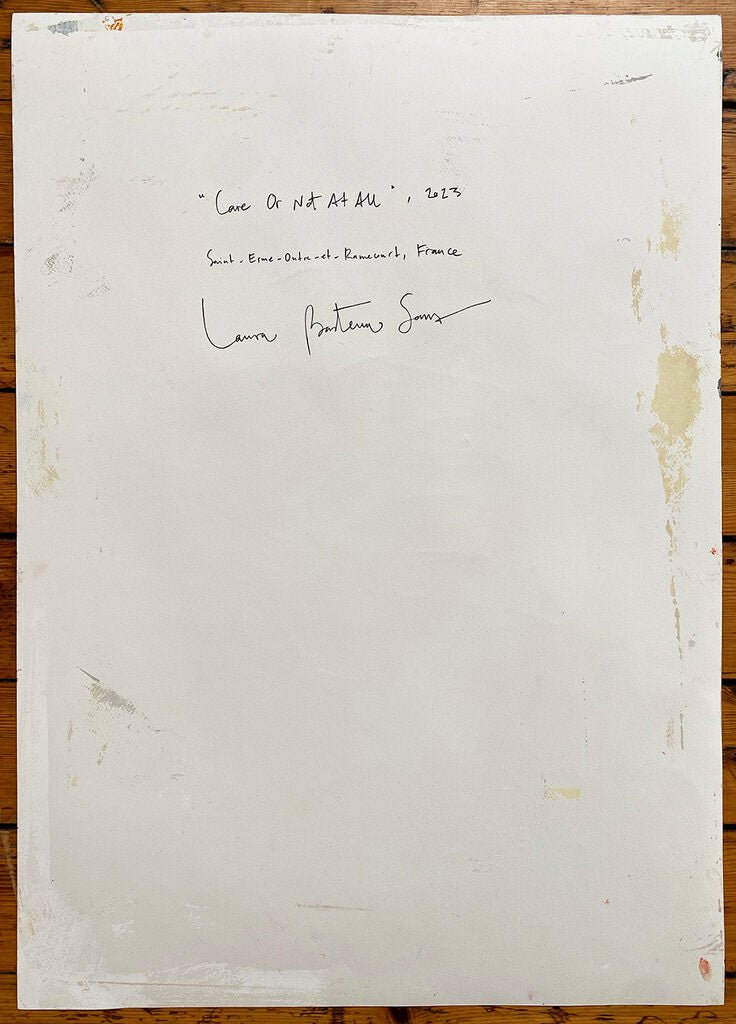 "Care Or Not At All", 2023
Saint-Erme-Outre-et-Ramecourt, France
Laura